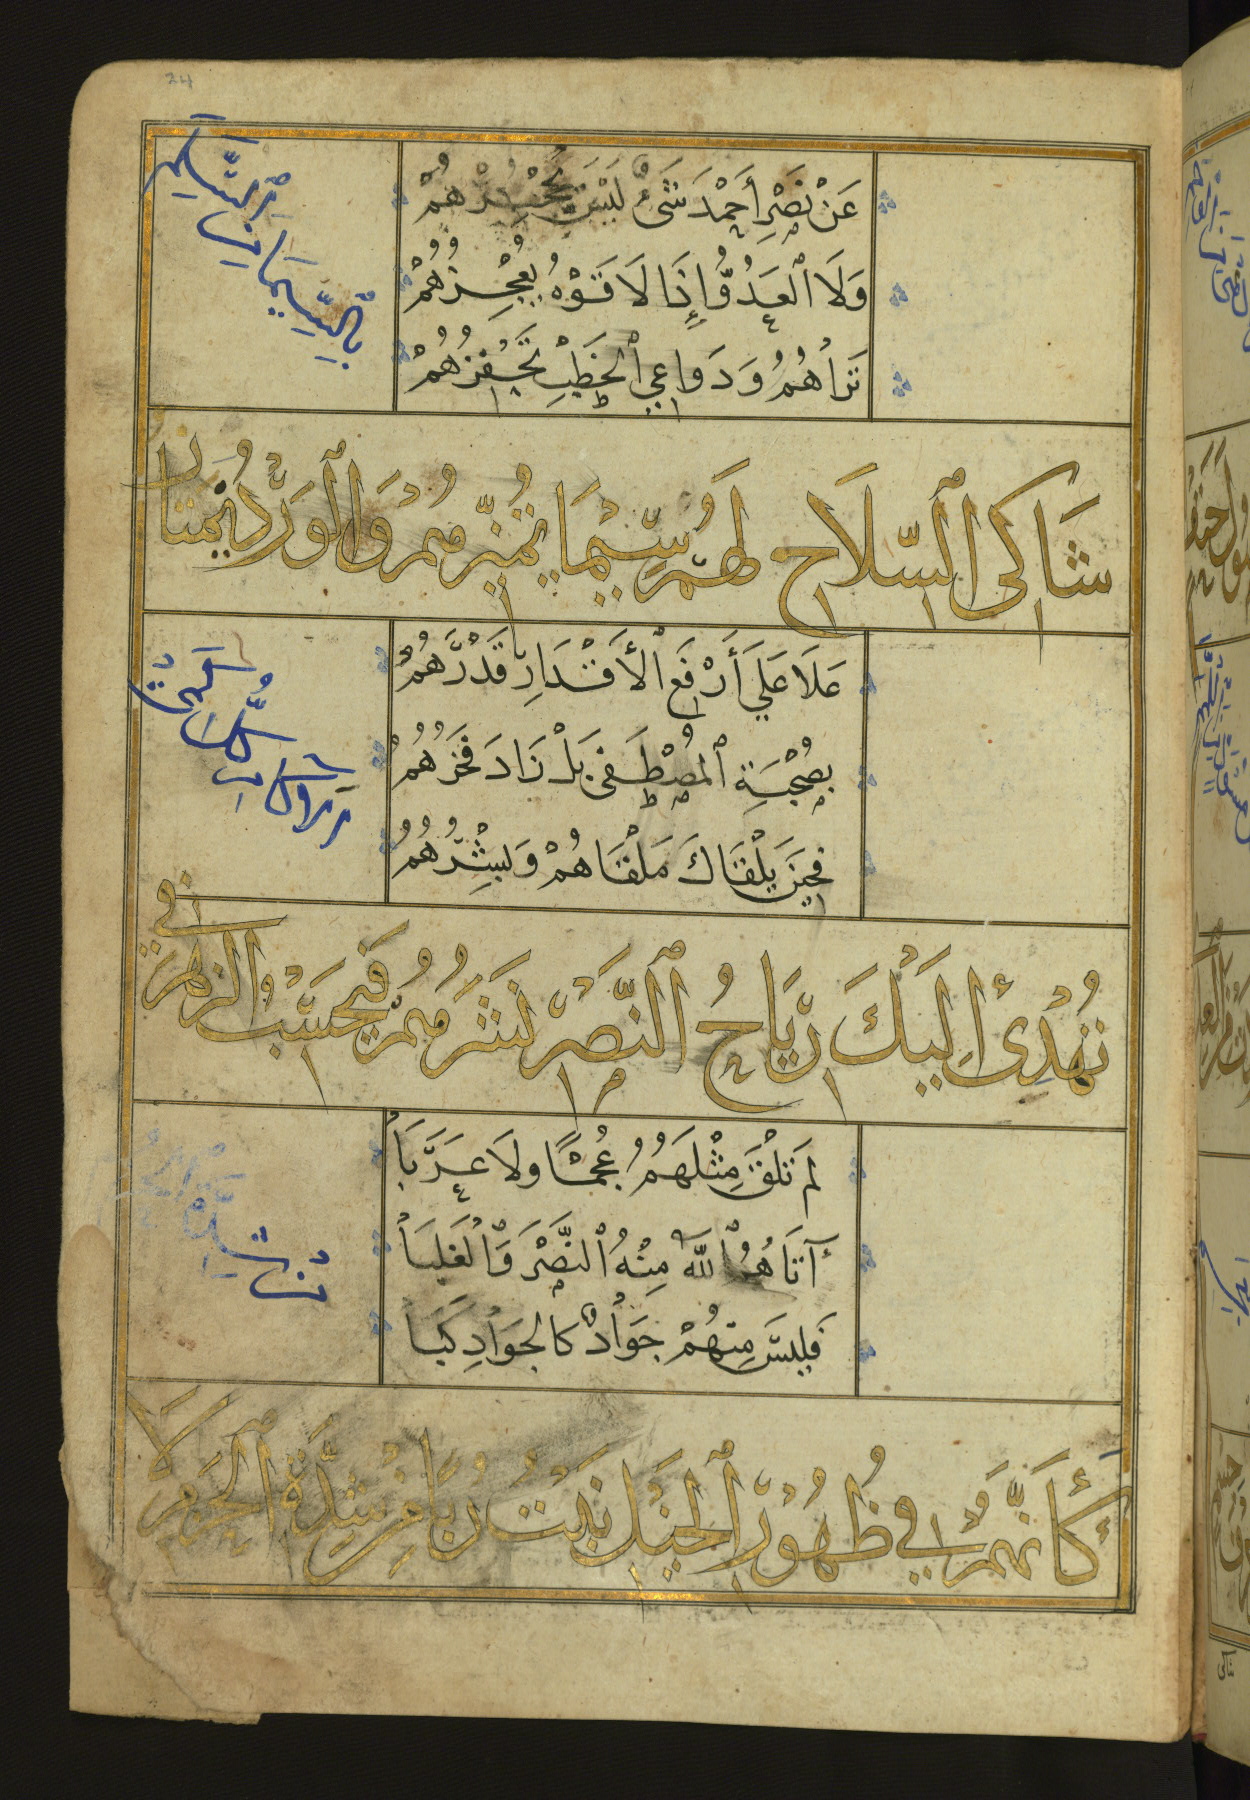 24
عَنْ نَصْرِ أَحْمَدَ شَىْءٌ لَيْسَ يَحْجُزُهُمْ
وَلَا الْعَدُوُّ إِذَا لَاقَوْهُ يُعْجِزُهُمْ
تَرَاهُمُ وَدَوَاعِي الْخَطْبِ تَحْفِزُهُمْ
بِالسِّيمَا مِنَ السَّلَمِ
شَاكِى السِّلَاحِ لَهُمْ سِيْمَا تُمَيِّزُهُمْ وَالْوَرْدُ يَمْتَازُ
عَلَا عَلَى أَرْفَعِ الْأَقْدَارِ قَدْرُهُمُ
بِصُحْبَةِ الْمُصْطَفَى بَلْ زَادَ فَخْرُهُمُ
فَحِينَ يَلْقَاكَ مَلْقَاهُمْ وَبِشْرُهُمُ
الْأَكْمَامِ كُلَّ كَمِى
تُهْدِى إِلَيْكَ رِيَاحُ النَّصْرِ نَشْرَهُمُ فَتَحْسَبُ الزَّهْرَ فِي
لَمْ تَلْقَ مِثْلَهُمُ عُجْمًا وَلَا عَرَبَا
آتَاهُمُ اللهُ مِنْهُ النَّصْرَ وَالْغَلَبَا
فَلَيْسَ مِنْهُمْ جَوَادٌ كَالْجَوَادِ كَبَا
مِنْ شِدَّةِ الْحُزُمِ
كَأَنَّهُمْ فِي ظُهُورِ الْخَيْلِ نَبْتُ رُبًا مِنْ شِدَّةِ الْحَزْمِ لَا
شاكى